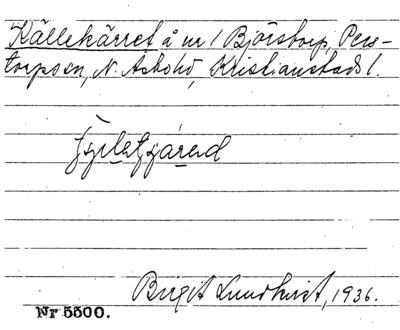 Källekärret å nr 1 Björstorp, Pers-
torps sn, N. Åsbohd, Kristianstads l.
Birgit Lundkvist, 1936.
Nr 5500.